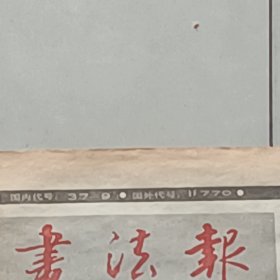 国内代号：37—9 ● 国外代号：11770 ●
書法報